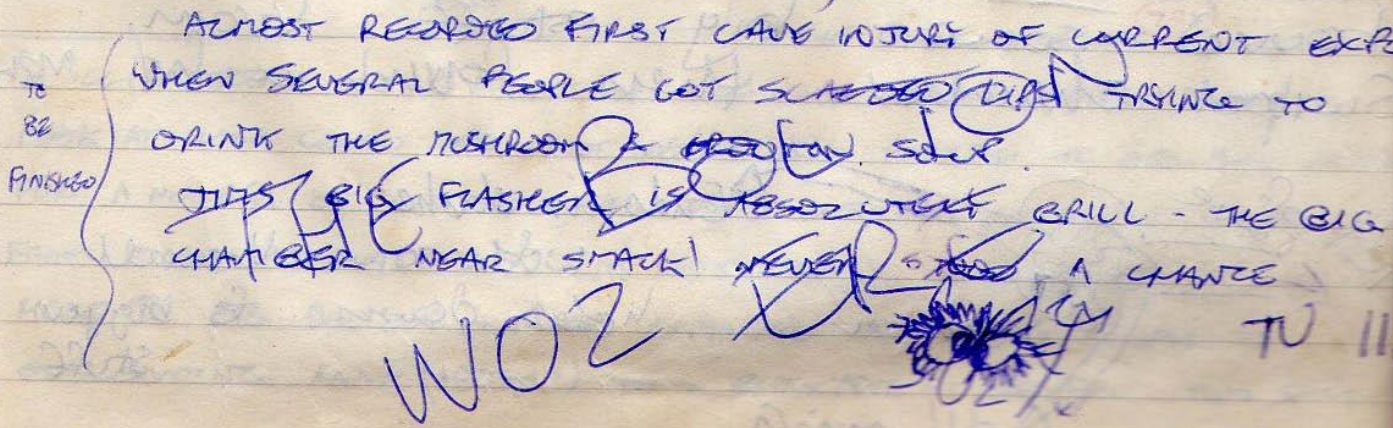 ALMOST RECORDED FIRST CAVE INJURY OF CURRENT EXPE
WHEN SEVERAL PEOPLE GOT SCALDED LIPS TRYING TO
DRINK THE MUSHROOM & CROUTON SOUP.
JIM'S BIG FLASHER IS ABSOLUTELY BRILL - THE BIG
CHAMBER NEAR STACK! NEVER STOOD A CHANCE
TO
BE
FINISHED
WOZ
TU 11